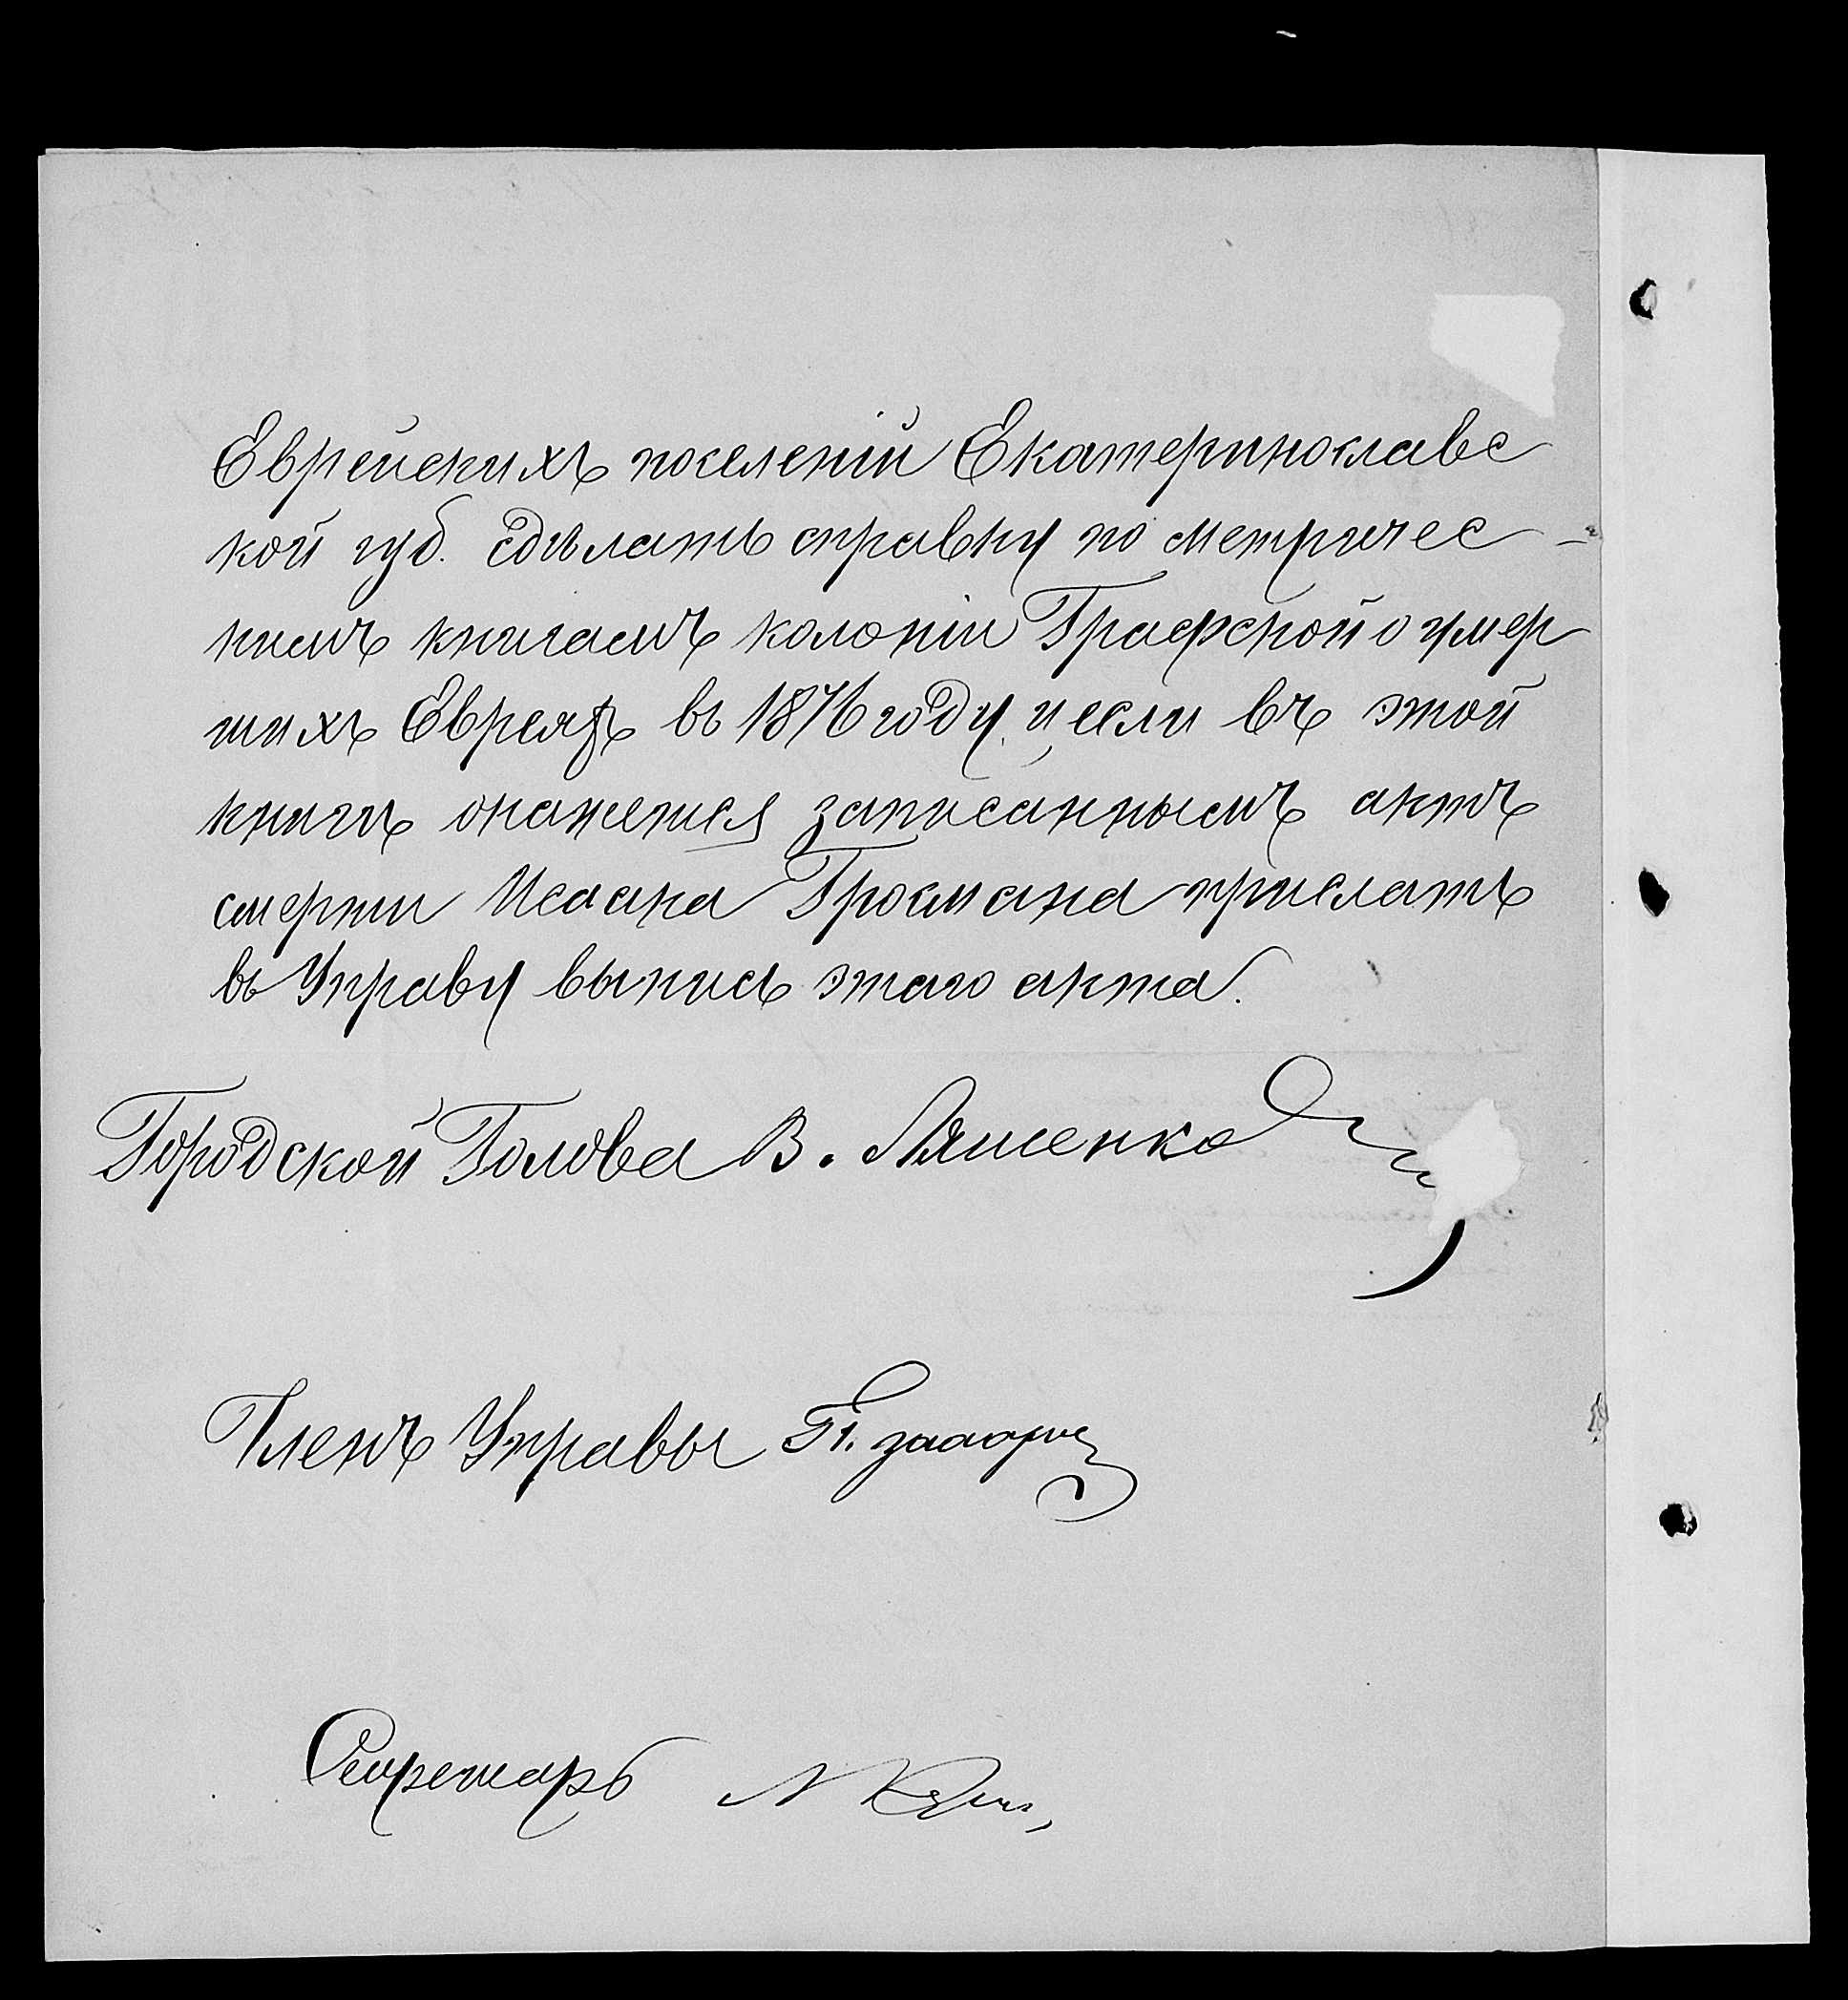 Еврейскихъ поселеній Екатеринославс
кой губ. сдѣлать справку по метричес-
кимъ книгамъ колоніи Графской о умер
шихъ Евреяхъ въ 1876 году, и если въ этой
книгѣ окажется записаннымъ актъ
смерти Исаака Гросмана прислать
въ Управу выпись этаго акта.
Городской Голова В. Ляшенко
Членъ Управы
Секретарь